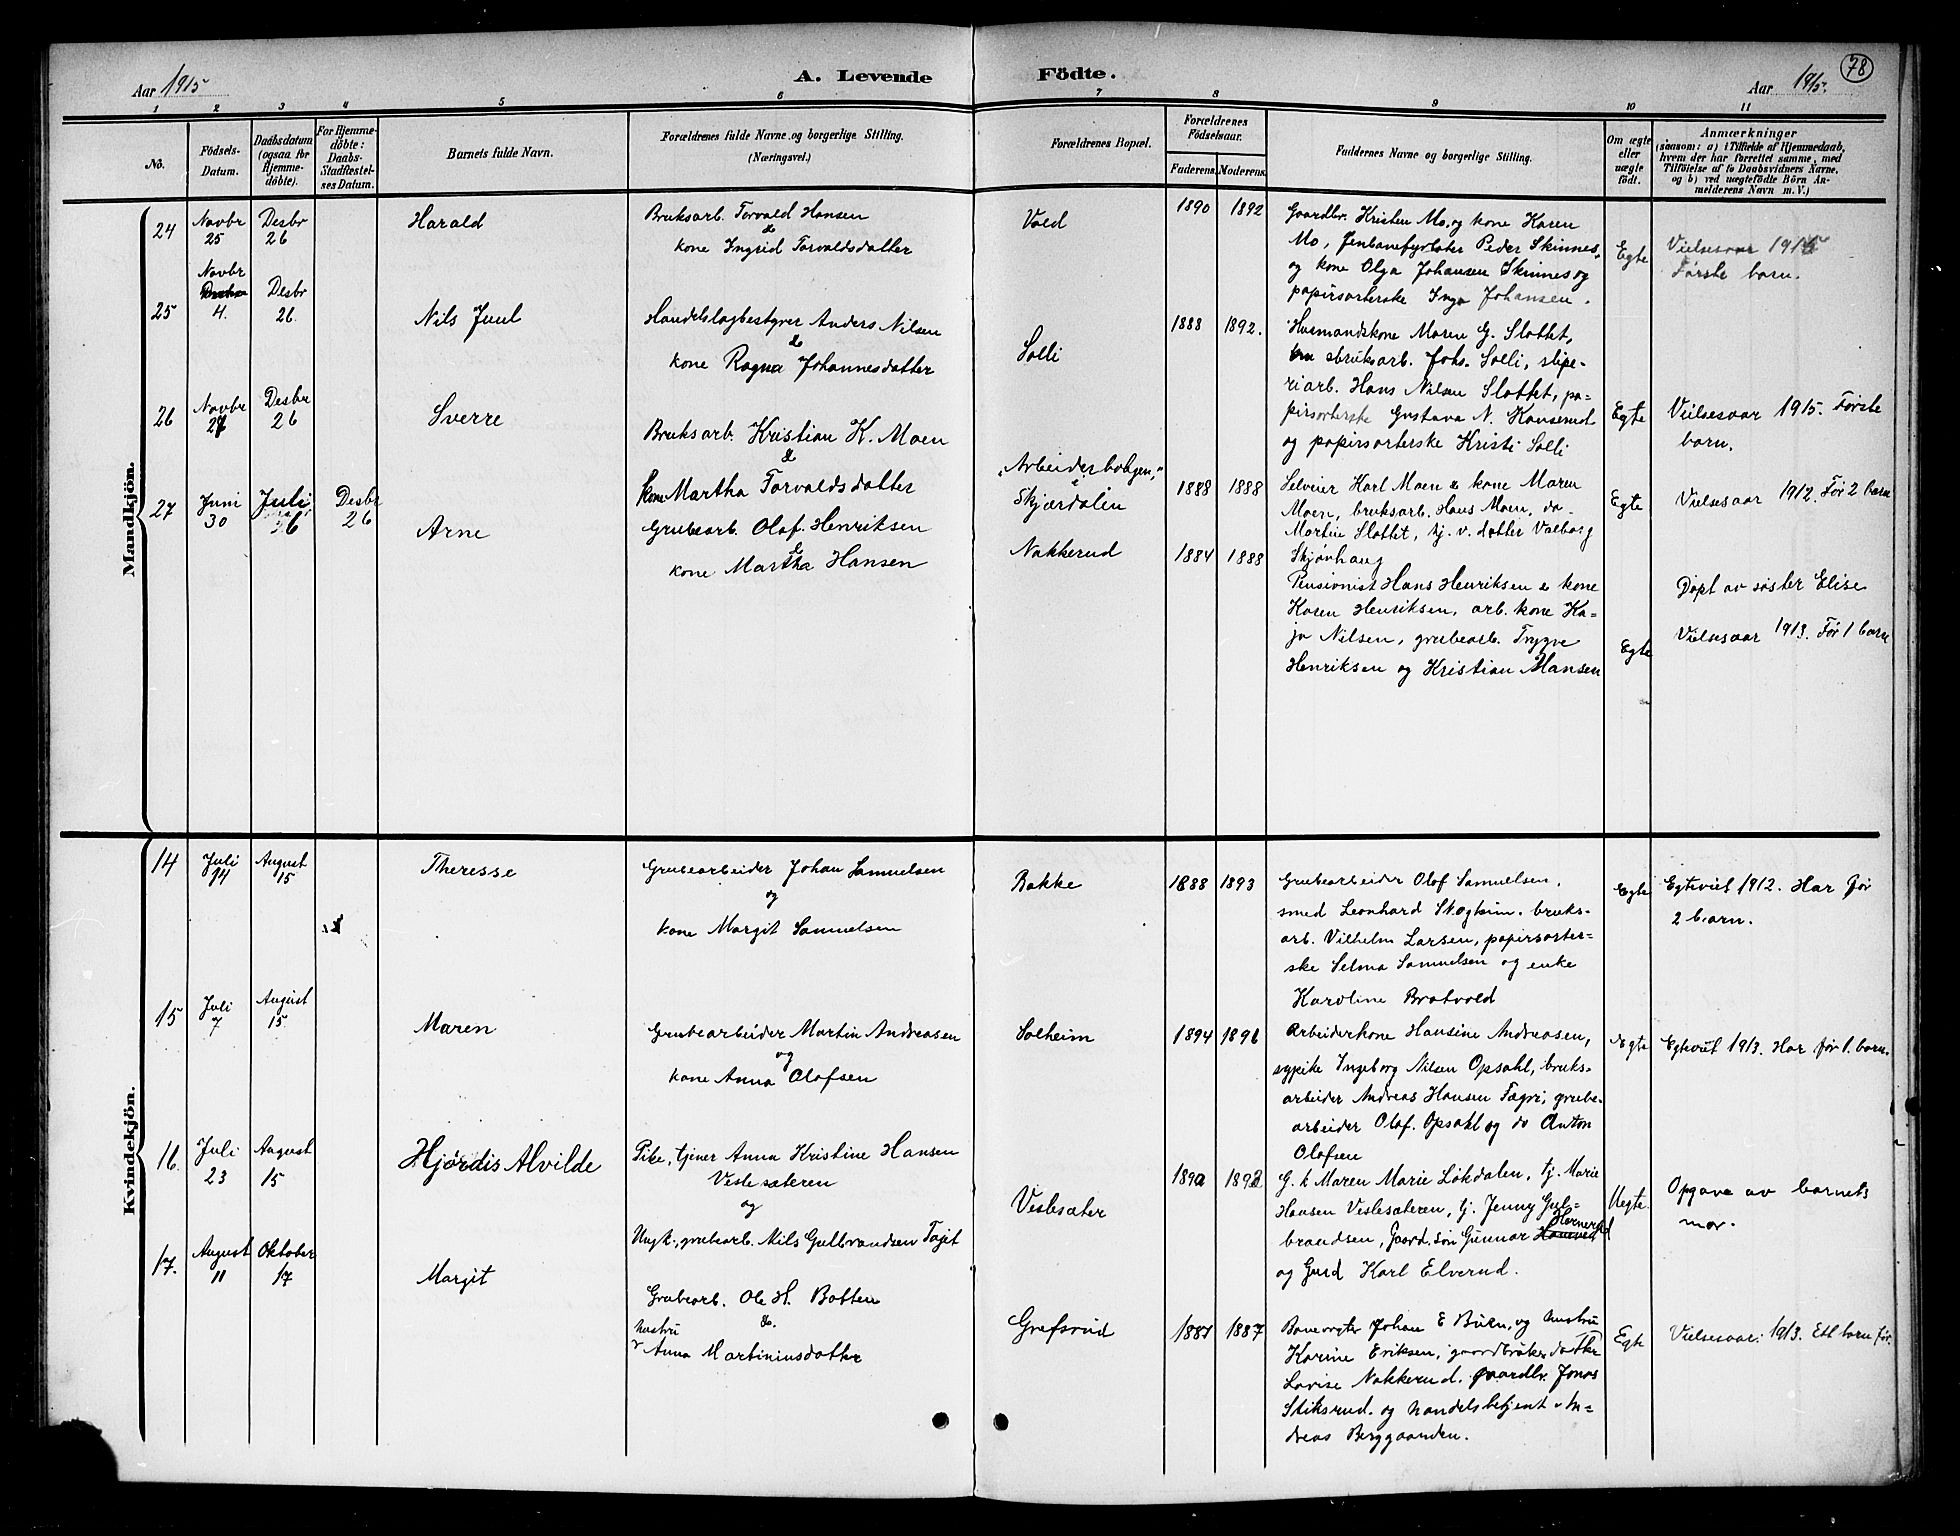 78
Aar 1915
A. Levende Födte.
Aar 1915.
1 2 3 4 5 6 7 8 9 10 11
Nö.
Födsels-
Datum.
Daabsdatum
(ogsaa for
Hjemme-
döbte).
For Hjemme-
döbte:
Daabs-
Stadfæstel-
ses Datum.
Barnets fulde Navn.
Forældrenes fulde Navne og borgerlige Stilling.
(Næringsvei.)
Forældrenes Bopæl.
Forældrenes
Födselsaar.
Faderens. Moderens.
Faddernes Navne og borgerlige Stilling.
Om ægte
eller
uægte
födt.
Anmærkninger
(saasom: a) i Tilfælde af Hjemmedaab,
hvem der har forrettet samme, med
Tilföielse af to Daabsvidners Navne,
og b) ved uægtefödte Börn An-
melderens Navn m. V.)
Mandkjön.
24
Novbr
25
Desbr
26
Harald
Bruksarb. Torvald Hansen
&
kone Ingrid Torvaldsdatter
Vold
1890 1892
Gaardbr. Kristen Mo, og kone Karen
Mo, Jenbanefyrbøter Peder Skinnes,
og kone Olga Johansen Skinnes og
papirsorterske Inga Johansen.
Egte
Vielsesaar 1915
Første barn.
25
Novbr
4.
Desbr
26.
Nils Juul
Handelslagbestyrer Anders Nilsen
&
kone Ragna Johannesdatter
Solli
1888 1892.
Husmandskone Maren G. Slattet,
sbruksarb. Johs. Solli, slipe-
riarb. Hans Nilsen Slottet, pa-
pirsorterske Gustava N. Hanserud
og papirsorterske Kristi Solli
Egte
Vielsesaar 1915. Første
barn.
26
Novbr
28
Desbr
26
Sverre
Bruksarb. Kristian K. Moen
&
kone Martha Torvaldsdatter
"Arbeiderboligen,"
Skjærdalen
1888 1888
Selveier Karl Moen & kone Maren
Moen, bruksarb. Hans Moen, do.
Martin Slottet, tj. v. datter Valborg
Skjørhaug
Egte
Vielsesaar 1912. Før 2 barn
27
Juni
30
Juli
26
Desbr
26
Arne
Grubearb. Olaf Henriksen
&
kone Martha Hansen
Nakkerud
1884 1888
Pensionist Hans Henriksen & kone
Karen Henriksen, arb. kone Ka-
ja Nilsen, grubearb. Trygve
Henriksen og Kristian Hansen
Egte
Døpt av søster Elise
Vielsesaar 1913. Før 1 barn
Kvindekjön.
14
Juli
14
August
15
Theresse
Grubearbeider Johan Samuelsen
og
kone Margit Samuelsen
Bakke
1888 1893
Grubearbeider Olof Samuelsen,
smed Leonhard Skogheim. bruks-
arb. Vilhelm Larsen, papirsorter-
ske Selma Samuelsen og enke
Karoline Bratvold
Egte
Egteviet 1912. Har før
2 barn.
15
Juli
7
August
15.
Maren
Grubearbeider Martin Andreasen
og
kone Anna Olafsen
Solheim
1894 1896
Arbeiderkone Hansine Andreasen,
sypike Ingeborg Nilsen Opsahl, bruks-
arbeider Andreas Hansen Fagri, grube-
arbeider Olaf. Opsahl og do Anton
Olafsen
Egte
Egteviet 1913. Har før 1. barn.
16.
Juli
23
August
15
Hjørdis Alvilde
Pike, tjener Anna Kristine Hansen
Veslesæteren
og
Ungk., grubearb. Nils Gulbrandsen Fajet
Veslesæter
1890 1892
G. k Maren Marie Løkdalen, tj. Marie
Hansen Veslesæteren, tj. Jenny Gul-
brandsen, Gaard. søn Gunnar Hornerud
og Gmd Karl Elverud.
Uegte.
Opgave av barnets
mor.
17.
August
11
Oktober
17
Margit
Grubearb. Ole H. Botten
&.
hustru
Anna Martiniusdatter
Grefsrud
1887 1887
Banevogter Johan E Buen, og hustru
Karine Eriksen, gaardbruker datter
Lovise Nakkerud. gaardbr. Jonas
Stiksrud. og handelsbetjent An-
dreas Berggaarden.
Egte
Vielsesaar: 1913. Ett barn før.